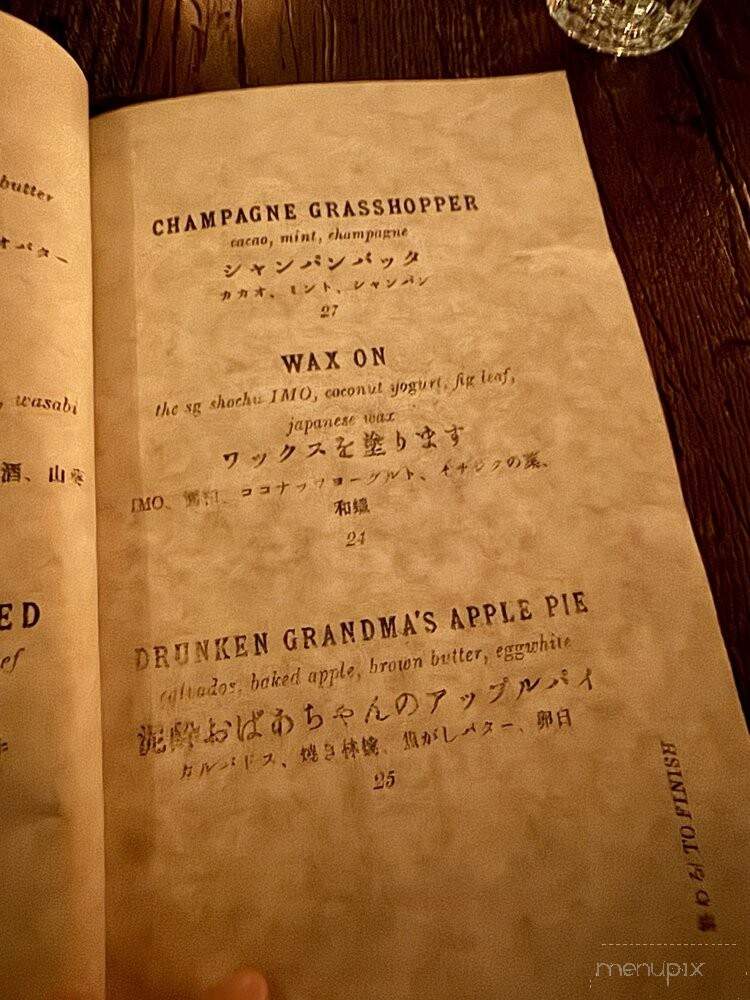 butter
オバター
, wasabi
酒、山葵
ED
ef
CHAMPAGNE GRASSHOPPER
cacao, mint, champagne
シャンパンバッタ
カカオ、ミント、シャンパン
27
WAX ON
the sg shochu IMO, coconut yogurt, fig leaf,
japanese wax
ワックスを塗ります
IMO、ココナッツヨーグルト、イチジクの葉、
和蝋
24
DRUNKEN GRANDMA'S APPLE PIE
calvados, baked apple, brown butter, eggwhite
泥酔おばあちゃんのアップルパイ
カルバドス、焼き林檎、焦がしバター、卵白
25
終わる/ TO FINISH
menupix